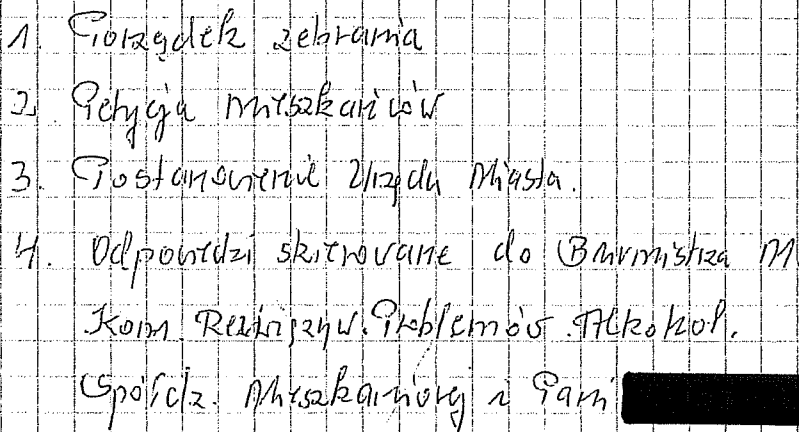 1. Porządek zebrania
2. Petycja mieszkańców
3. Postanowienie Urzędu Miasta.
4. Odpowiedzi skierowane do Burmistrza M
Kom. Rozwiązyw. Problemów Alkohol.
Spółdz. Mieszkaniowej i Pani